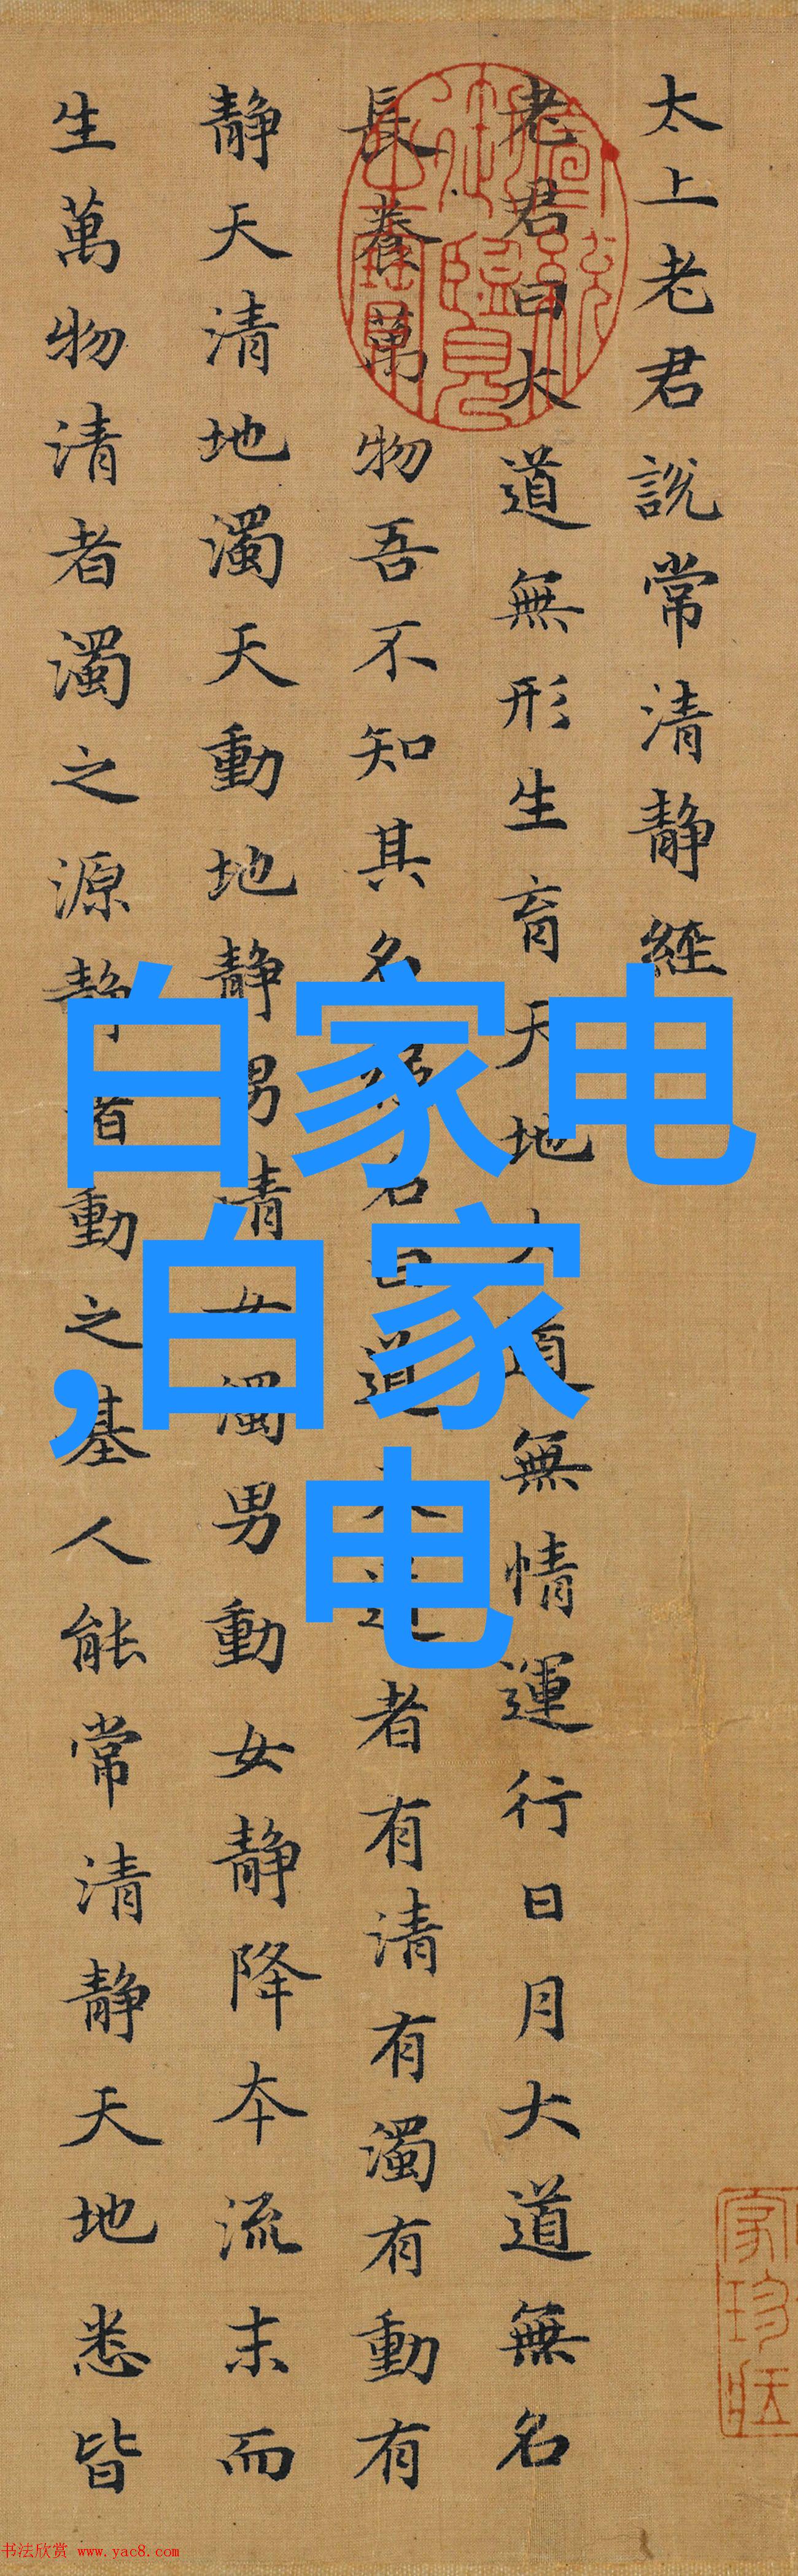 太上老君說常清静經
老君曰大道無形生育天地大道無情運行日月大道無名
長養萬物吾不知其名強名曰道夫道者有清有濁有動有
静天清地濁天動地静男清女濁男動女静降本流末而
生萬物清者濁之源静者動之基人能常清静天地悉皆
宣統御覽之寶
白家电
,白家
电
书法欣赏 www.yac8.com